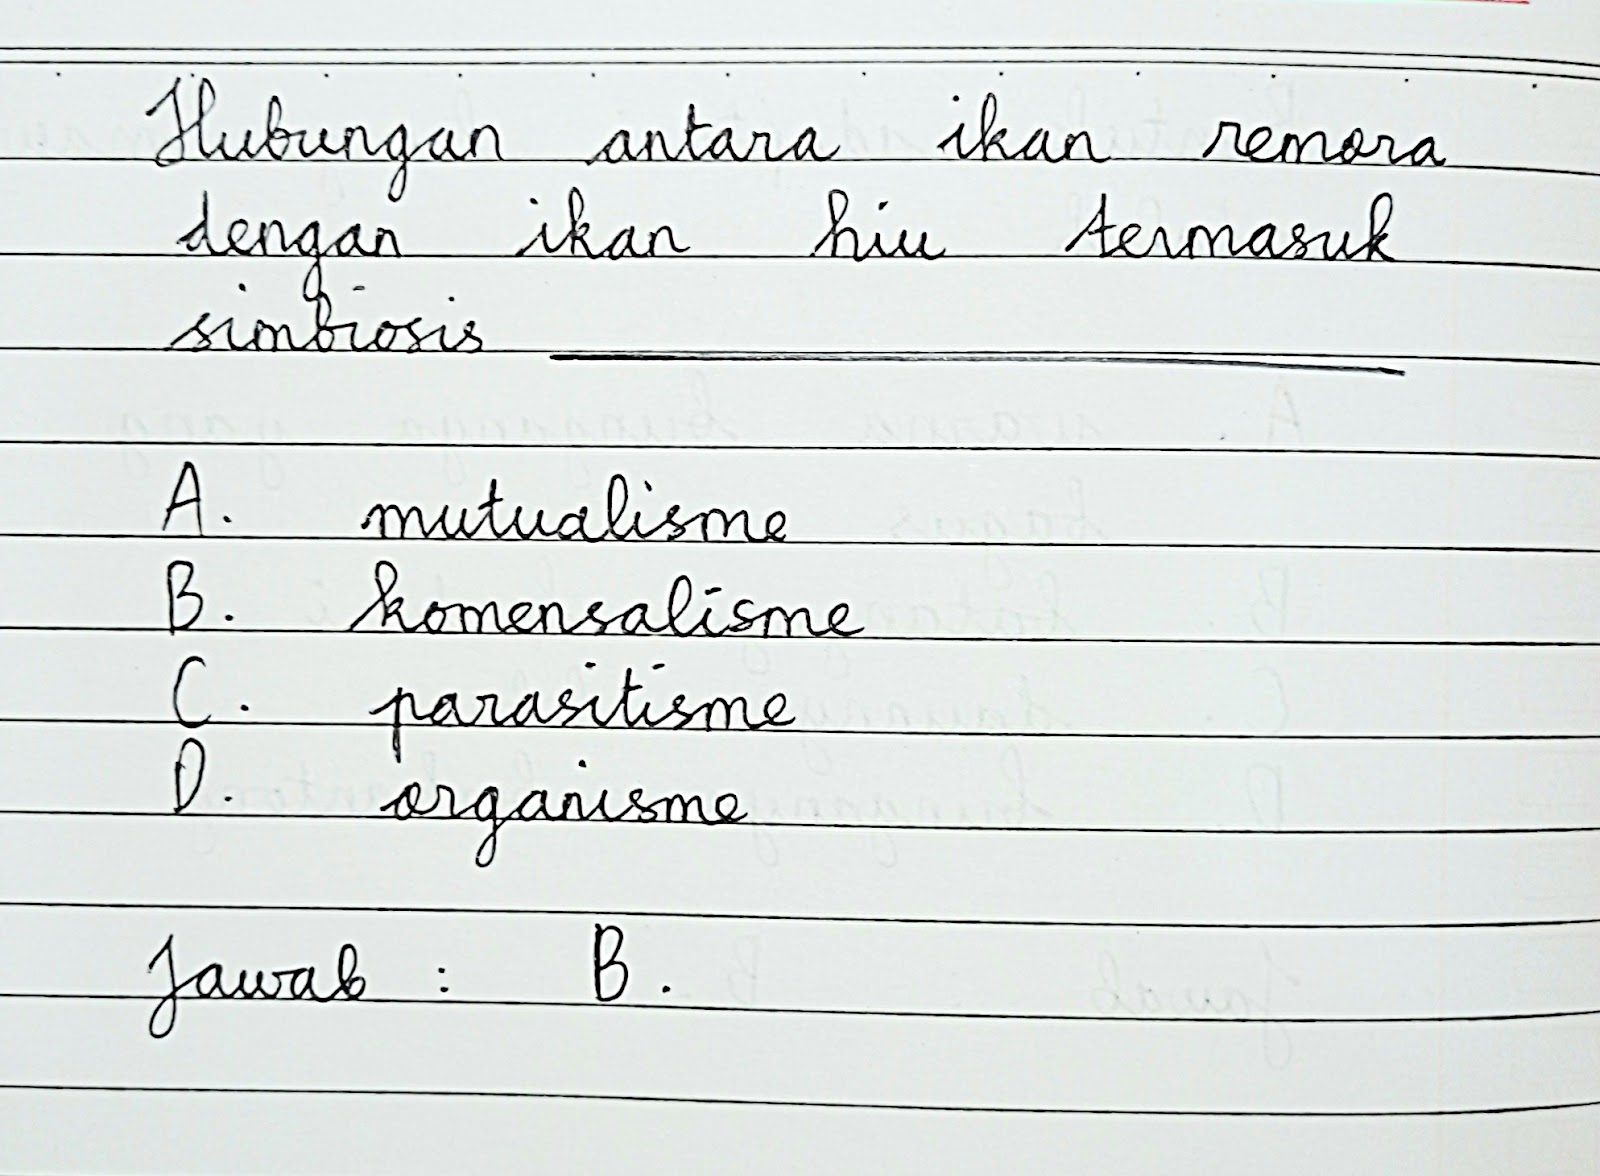 Hubungan antara ikan remora
dengan ikan hiu termasuk
simbiosis ____________
A. mutualisme
B. komensalisme
C. parasitisme
D. organisme
Jawab : B.